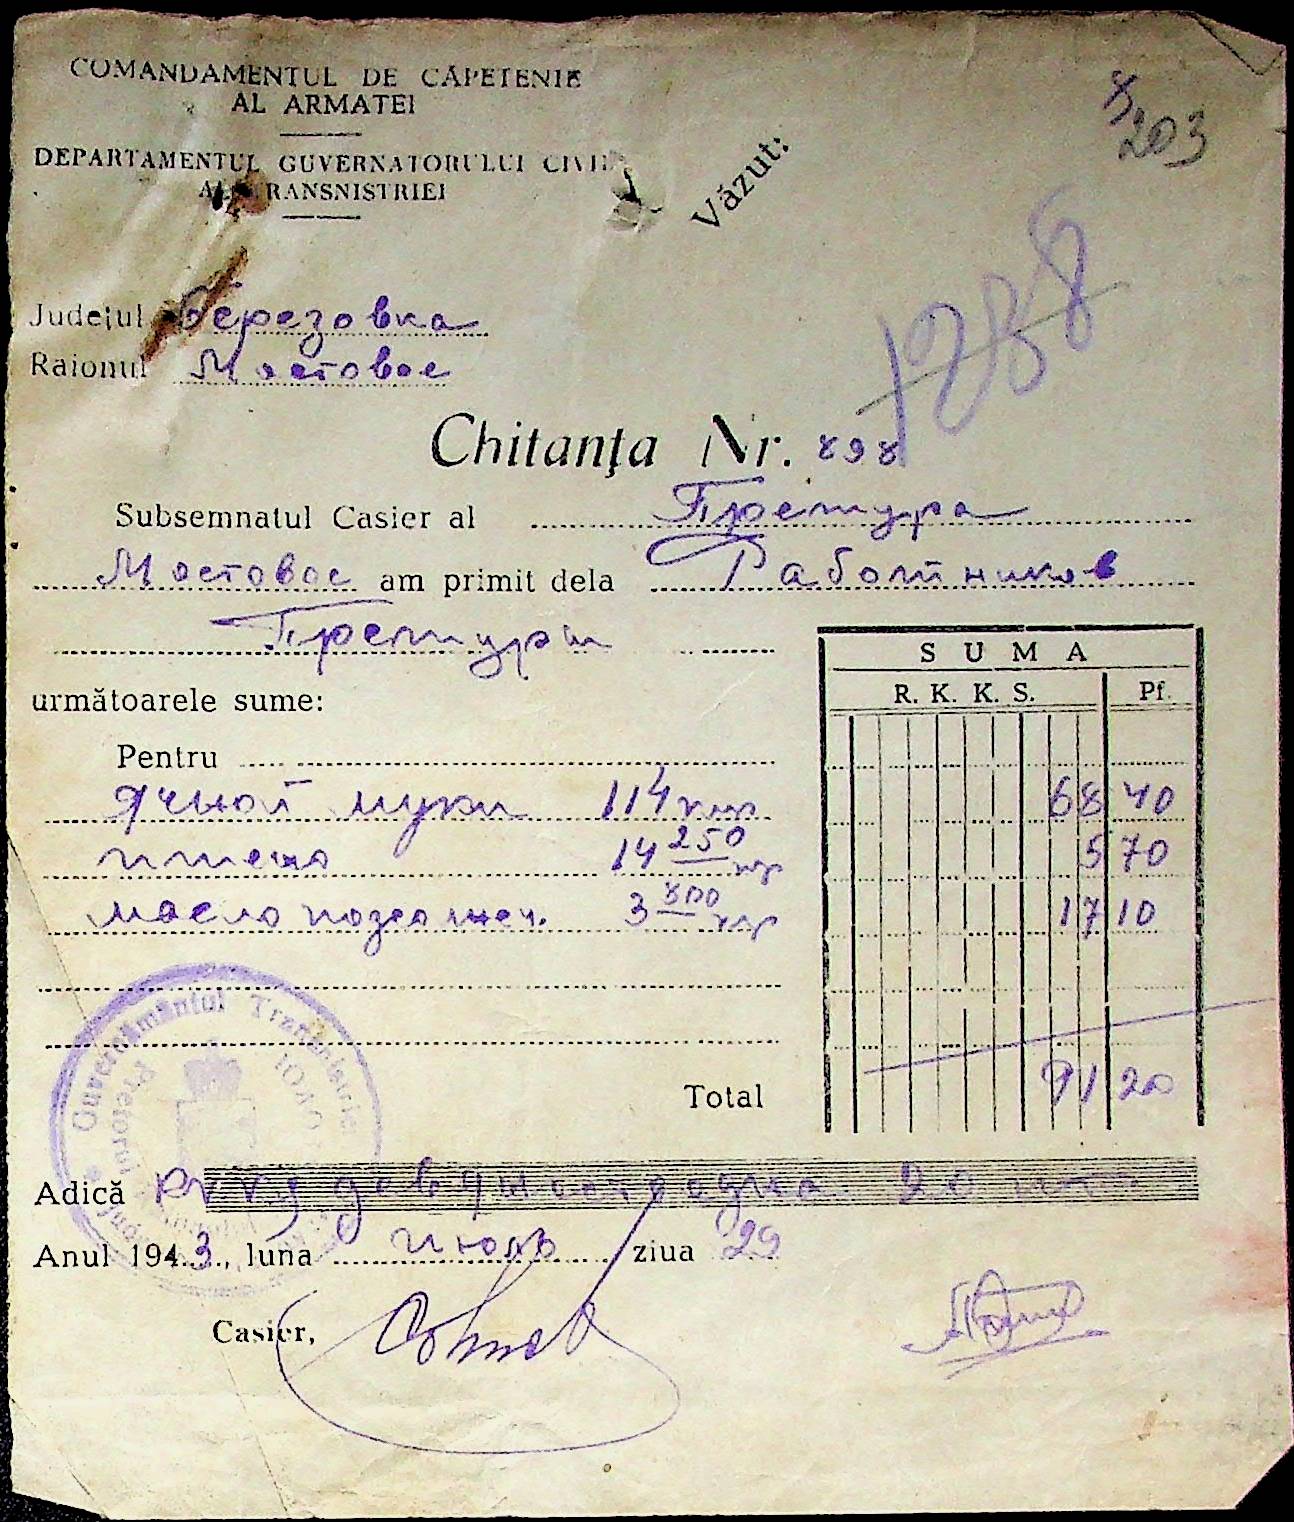 COMANDAMENTUL DE CAPETENIE
AL ARMATEI
DEPARTAMENTUL GUVERNATORULUI CIVIL
AL TRANSNISTRIEI
Văzut:
203
1288
Județul Березовка
Raionul Мостовое
Chitanța Nr. 898
Subsemnatul Casier al Претура
Мостовое am primit dela Работников
Претуры
următoarele sume:
SUMA
R. K. K. S. Pf.
Pentru
Ячной муки 114 кгр 68 40
пшено 14 250 кгр 5 70
масло подсолнеч. 3 800 кгр 17 10
Total 91 20
Adică РККС девяносто одна 20 пф
Anul 1943, luna июль ziua 29
Casier,
Guvernământul Transnistriei
Pretorul